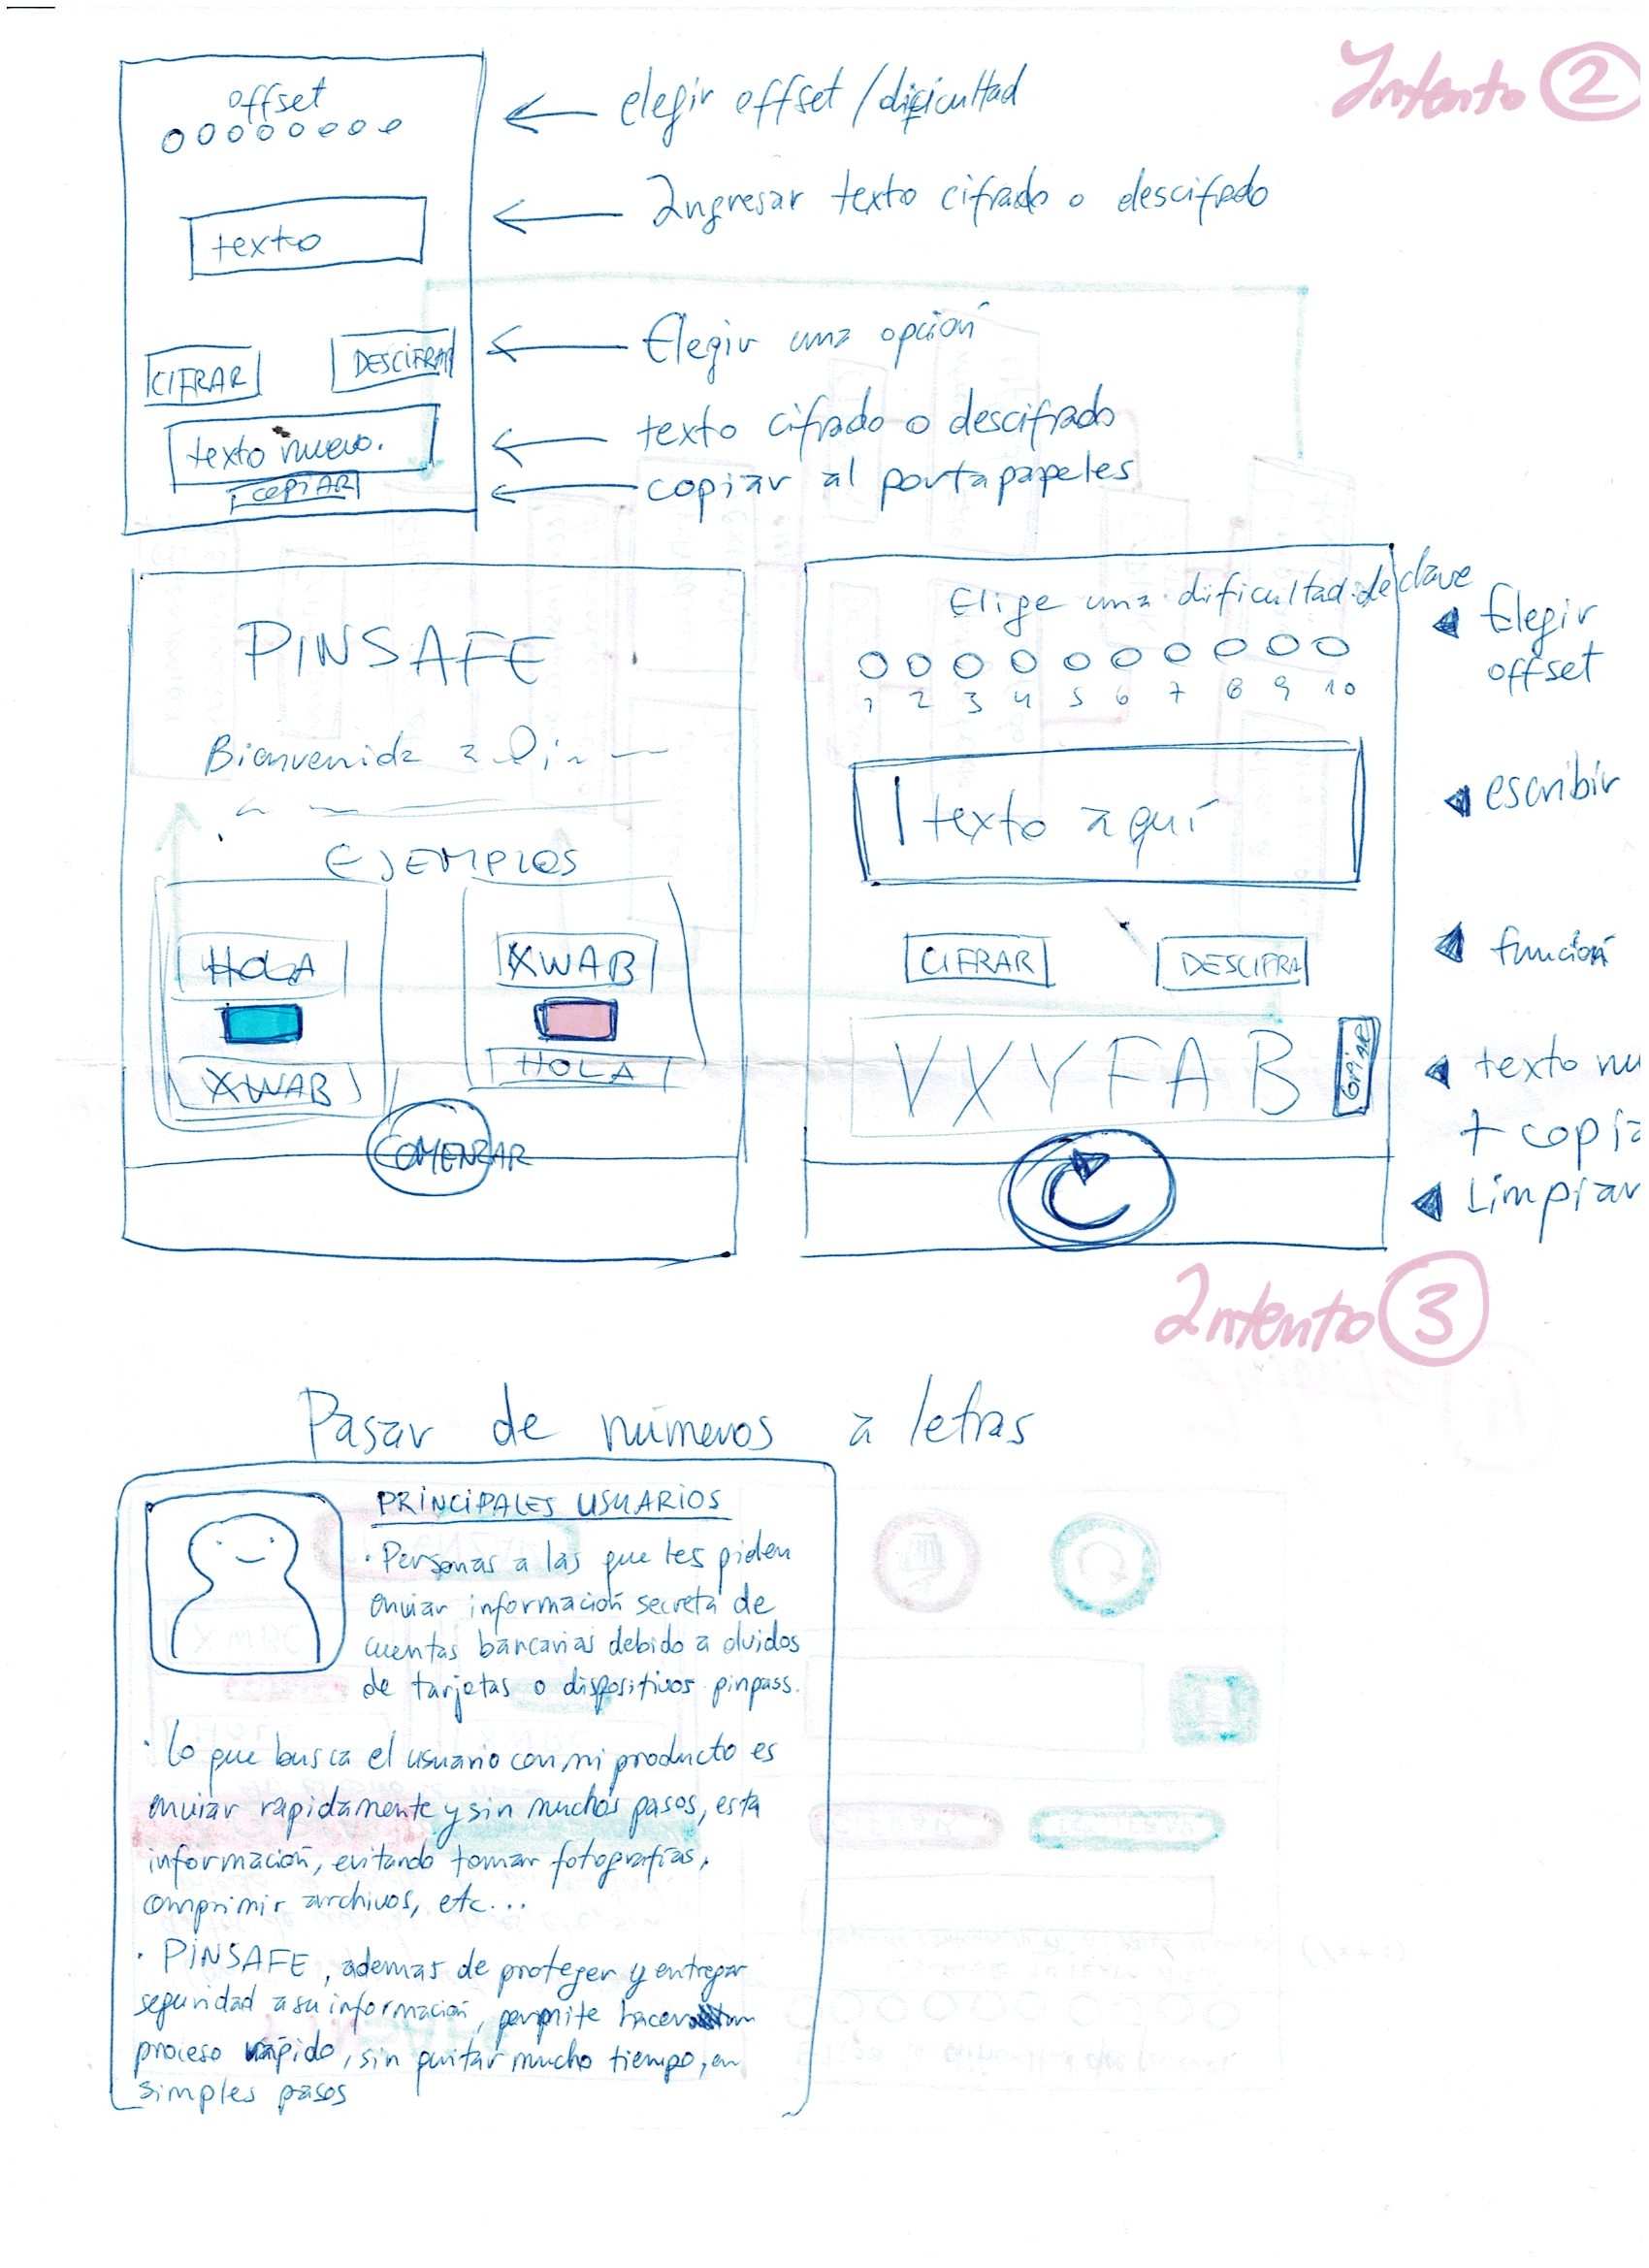 Intento 2
offset
elegir offset / dificultad
texto
Ingresar texto cifrado o descifrado
CIFRAR
DESCIFRAR
Elegir una opción
texto nuevo.
texto cifrado o descifrado
COPIAR
copiar al portapapeles
PINSAFE
Bienvenida a
EJEMPLOS
HOLA
XWAB
XWAB
HOLA
COMENZAR
Elige una dificultad de clave
1 2 3 4 5 6 7 8 9 10
Elegir
offset
texto aquí
escribir
CIFRAR
DESCIFRA
función
VXYFAB
COPIAR
texto nu
+ copia
Limpiar
Intento 3
Pasar de números a letras
PRINCIPALES USUARIOS
· Personas a las que les piden
enviar información secreta de
cuentas bancarias debido a olvidos
de tarjetas o dispositivos pinpass.
· Lo que busca el usuario con mi producto es
enviar rapidamente y sin muchos pasos, esta
información, evitando tomar fotografías,
comprimir archivos, etc...
· PINSAFE, ademas de proteger y entregar
seguridad a su información, permite hacer un
proceso rápido, sin quitar mucho tiempo, en
simples pasos